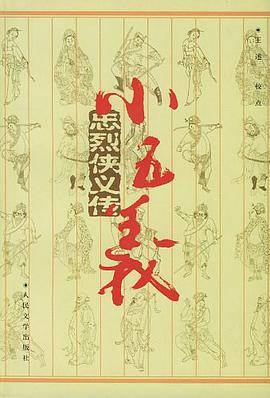 王述 校点
小五義
忠烈侠义传
人民文学出版社